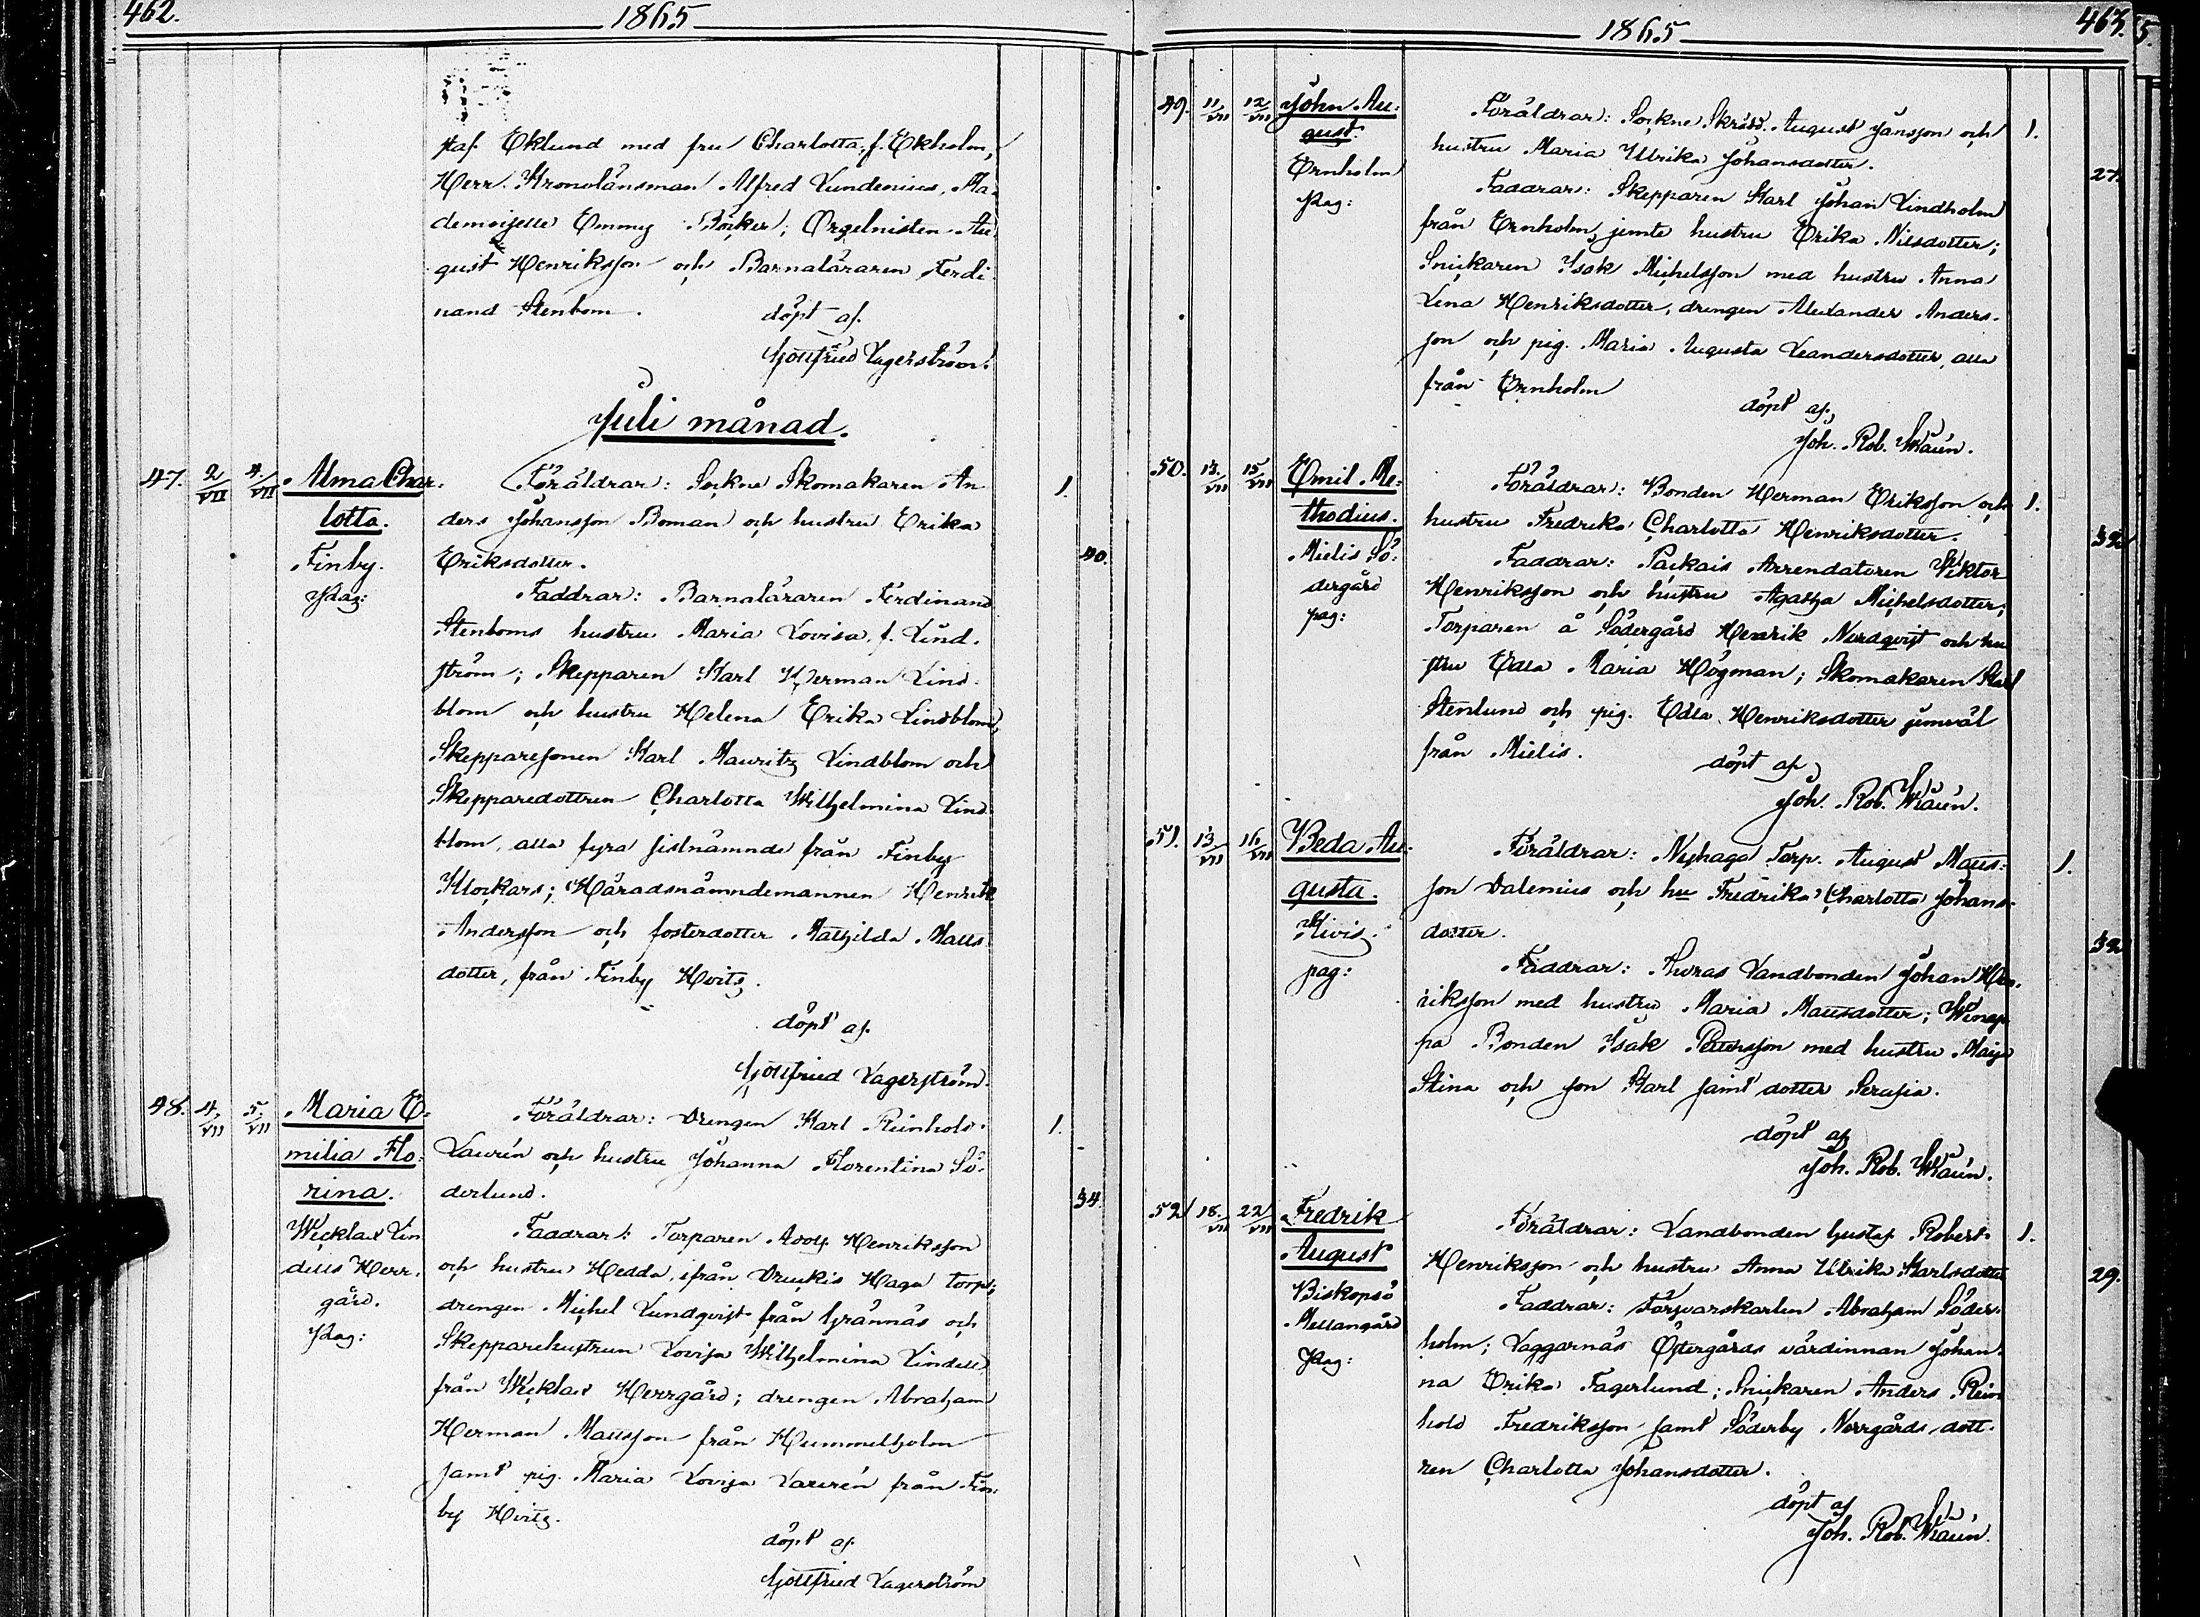 462. 1865
staf Eklund med fru Charlotta, f. Ekholm,
Herr Kronolänsman Alfred Lundenius, Ma-
demoiselle Emmy Böcker; Orgelnisten Au-
gust Henriksson och Barnaläraren Ferdi-
nand Stenbom.
döpt af.
Gottfried Lagerström.
Juli månad.
47. 2/VII 4/VII Alma Char-
lotta.
Finby.
Pag:
Föräldrar: Sockne Skomakaren An-
ders Johansson Boman och hustru Erika
Eriksdotter.
1.
40.
Faddrar: Barnaläraren Ferdinand
Stenboms hustru Maria Lovisa, f. Lind-
ström; Skepparen Karl Herman Lind-
blom och hustru Helena Erika Lindblom,
Skepparesonen Karl Mauritz Lindblom och
Skepparedottren Charlotta Wilhelmina Lind-
blom, alla fyra sistnämnde från Finby
Klockars; Häradsnämndemannen Henrik
Andersson och fosterdotter Mathilda Matts-
dotter, från Finby Hvitz.
döpt af.
Gottfried Lagerström.
48. 4/VII 5/VII Maria E-
milia Flo-
rina.
Wecklax Lin
delis Herr-
gård.
Pag:
Föräldrar: Drengen Karl Reinhold
Laurén och hustru Johanna Florentina Sö-
derlund.
1.
34.
Faddrar: Torparen Adolf Henriksson
och hustru Hedda, ifrån Haga torp;
drengen Michel Lundqvist från Grännäs och
Skepparehustrun Lovisa Wilhelmina Lindell
från Wecklax Herrgård; drengen Abraham
Herman Mattsson från Hummelholm
samt pig. Maria Lovisa Laurén från Fin-
by Hvitz.
döpt af.
Gottfried Lagerström
1865 463.
49. 11/VII 12/VII John Au-
gust.
Ornholm
Pag:
Föräldrar: Sockne Skrädd. August Jansson och
hustru Maria Ulrika Johansdotter.
1.
27.
Faddrar: Skepparen Karl Johan Lindholm
från Ornholm, jemte hustru Erika Nilsdotter;
Snickaren Isak Michelsson med hustru Anna
Lena Henriksdotter, drengen Alexander Anders-
son och pig. Maria Augusta Leandersdotter, alla
från Ornholm
döpt af,
Joh. Rob.
50. 13/VII 15/VII Emil Me-
thodius.
Mielis Sö-
dergård
pag:
Föräldrar: Bonden Herman Eriksson och
hustru Fredrika Charlotta Henriksdotter.
1.
Faddrar: Arrendatoren Viktor
Henriksson och hustru Agatha Michelsdotter;
Torparen å Södergård Henrik Nordqvist och hu-
stru Edla Maria Högman; Skomakaren Karl
Stenlund och pig. Edla Henriksdotter jemväl
från Mielis.
döpt af
Joh. Rob.
51. 13/VII 16/VII Beda Au-
gusta.
Kivis
pag:
Föräldrar: Nyhaga Torp. August Matts-
son Dalenius och hu Fredrika Charlotta Johans-
dotter.
1.
32
Faddrar: Landbonden Johan Hen-
riksson med hustru Maria Mattsdotter;
pa Bonden Isak Pettersson med hustru Maja
Stina och son Karl samt dotter Serafia.
döpt af
Joh. Rob.
52 18/VII 22/VII Fredrik
August
Biskopsö
Mellangård
Pag:
Föräldrar: Landbonden Gustaf Robert
Henriksson och hustru Anna Ulrika Karlsdotter
1.
29.
Faddrar: Försvarskarlen Abraham Söder-
holm; Vaggarnäs Östergårds värdinnan Johan-
na Erika Fagerlund; Snickaren Anders Rein
hold Fredriksson samt Söderby Norrgårds dott-
ren Charlotta Johansdotter.
döpt af
Joh. Rob.